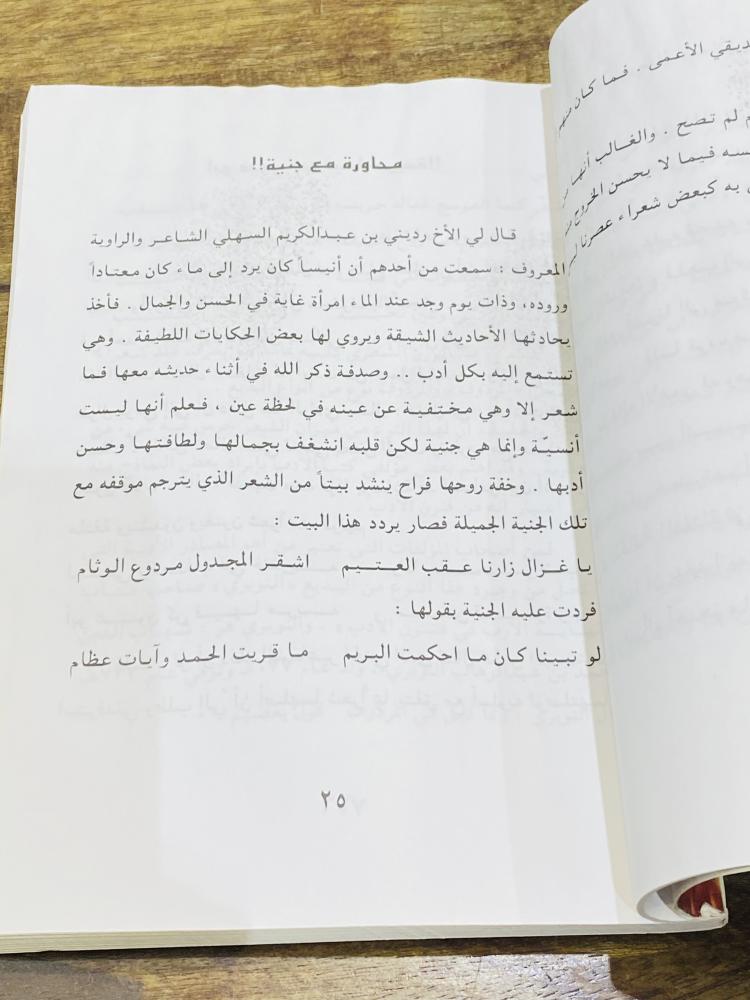 محاورة مع جنية!!
قال لي الأخ رديني بن عبدالكريم السهلي الشاعر والراوية
المعروف : سمعت من أحدهم أن أنيساً كان يرد إلى ماء كان معتاداً
وروده، وذات يوم وجد عند الماء امرأة غاية في الحسن والجمال . فأخذ
يحادثها الأحاديث الشيقة ويروي لها بعض الحكايات اللطيفة . وهي
تستمع إليه بكل أدب .. وصدفة ذكر الله في أثناء حديثه معها فما
شعر إلا وهي مختفية عن عينه في لحظة عين ، فعلم أنها ليست
أنسيّة وإنما هي جنية لكن قلبه انشغف بجمالها ولطافتها وحسن
أدبها . وخفة روحها فراح ينشد بيتاً من الشعر الذي يترجم موقفه مع
تلك الجنية الجميلة فصار يردد هذا البيت :
يا غزال زارنا عقب العتيم اشقر المجدول مردوع الوثام
فردت عليه الجنية بقولها :
لو تبينا كان ما احكمت البريم ما قريت الحمد وآيات عظام
٢٥
ديقي الأعمى . فما كان منهم
م لم تصح . والغالب أنها
سه فيما لا يحسن الخروج
به كبعض شعراء عصرنا